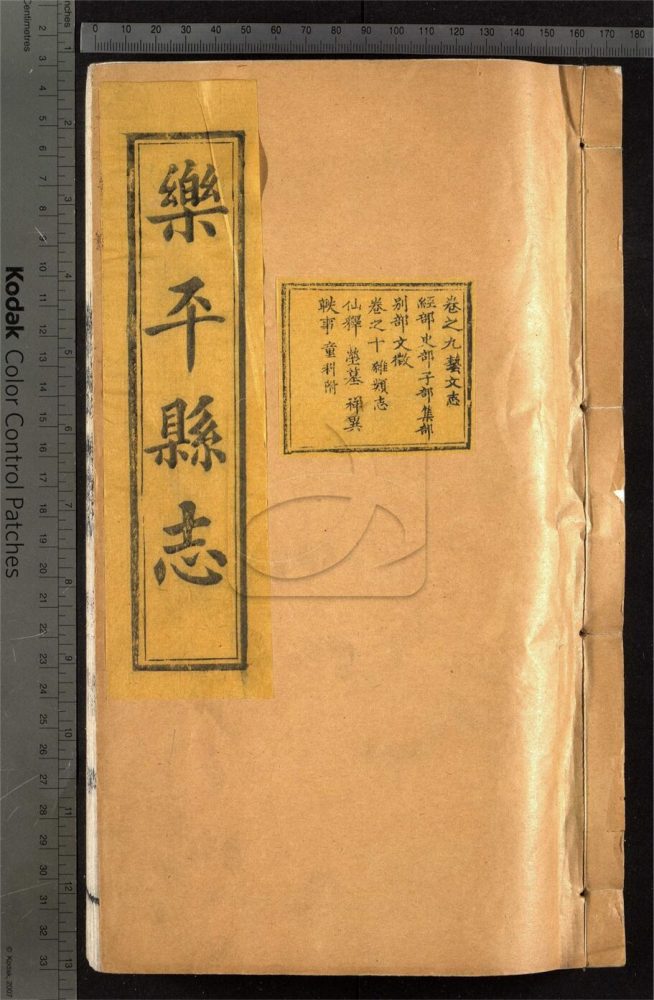 樂平縣志
卷之九 藝文志
經部 史部 子部 集部
別部 文徵
卷之十 雜類志
仙釋 塋墓 祥異
軼事 童科附
Kodak Color Control Patches
© Kodak, 2007
Centimetres
2 3 4 5 6 7 8 9 10 11 12 13 14 15 16 17 18 19 20 21 22 23 24 25 26 27 28 29 30 31 32 33
Inches
1 2 3 4 5 6 7 8 9 10 11 12 13
0 10 20 30 40 50 60 70 80 90 100 110 120 130 140 150 160 170 180